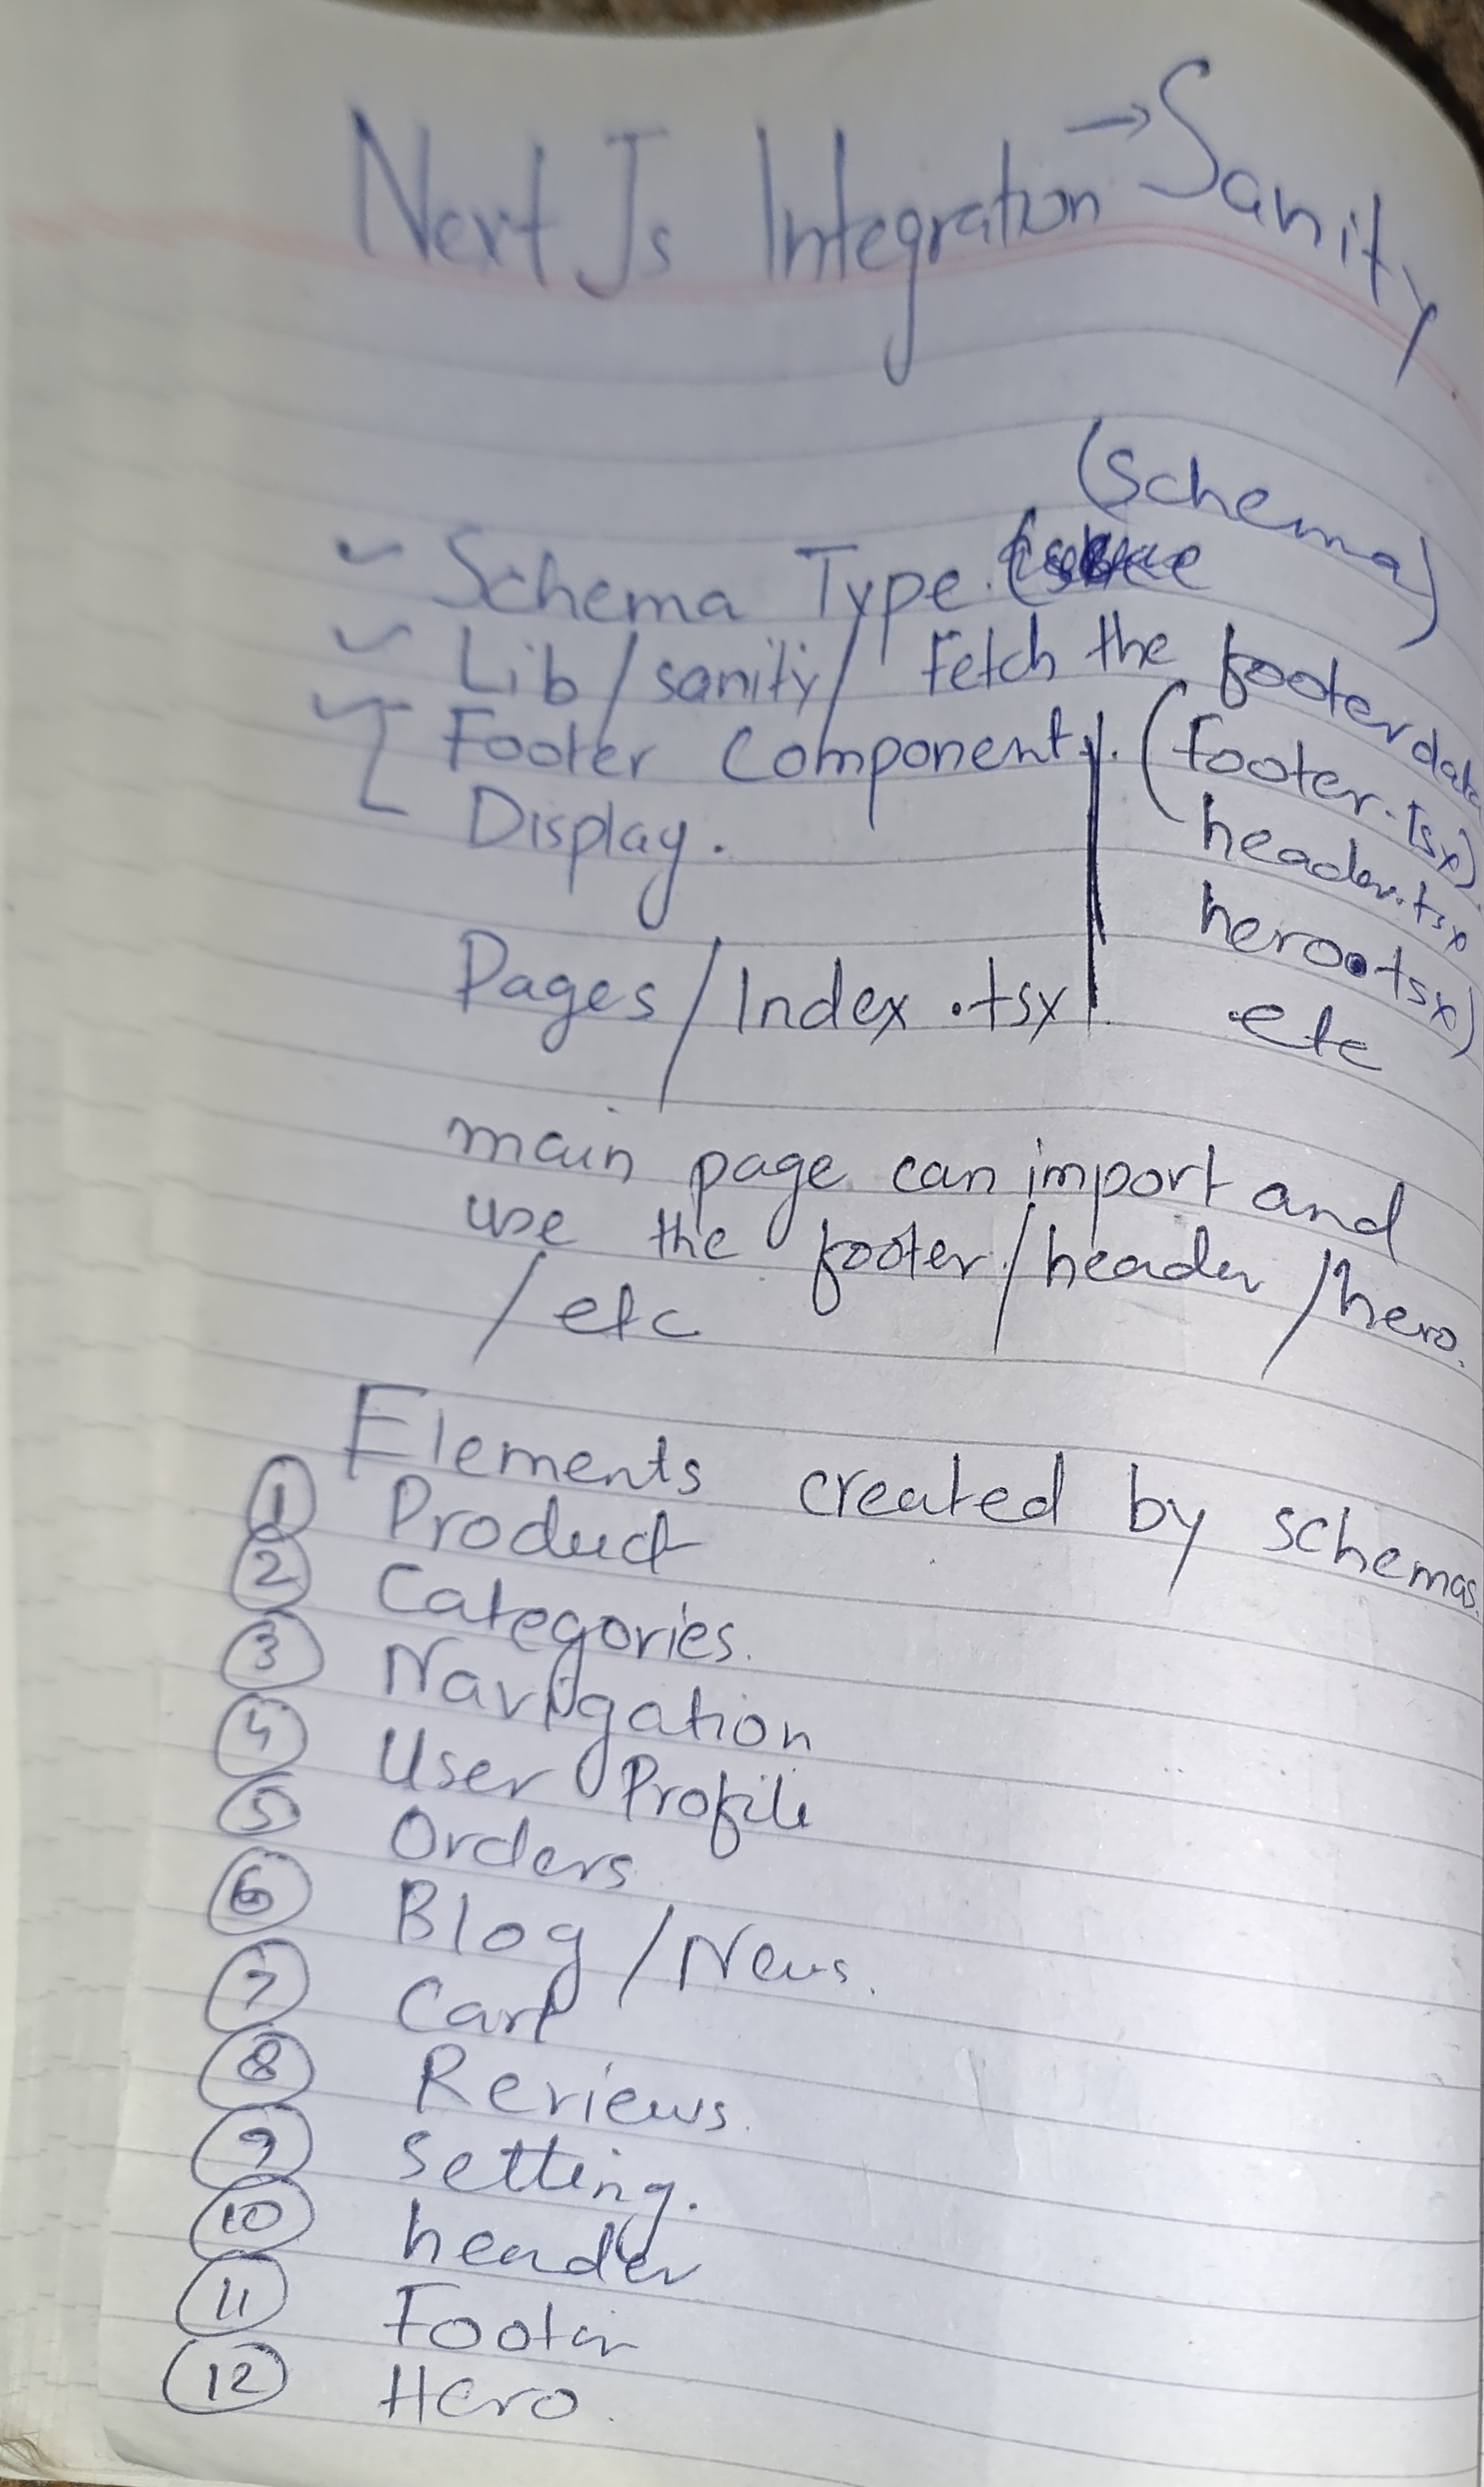 Next Js Integration → Sanity
(Schema)
Schema Type.
Lib/sanity/ Fetch the footer data
Footer Component/. (footer.tsx)
Display. header.tsx
hero.tsx)
Pages/Index.tsx etc
main page can import and
use the footer/header/hero.
/etc
Elements created by schemas.
① Product
② Categories.
③ Navigation
④ User Profile
⑤ Orders
⑥ Blog/News.
⑦ Cart
⑧ Reviews.
⑨ Setting.
⑩ header
⑪ Footer
⑫ Hero.